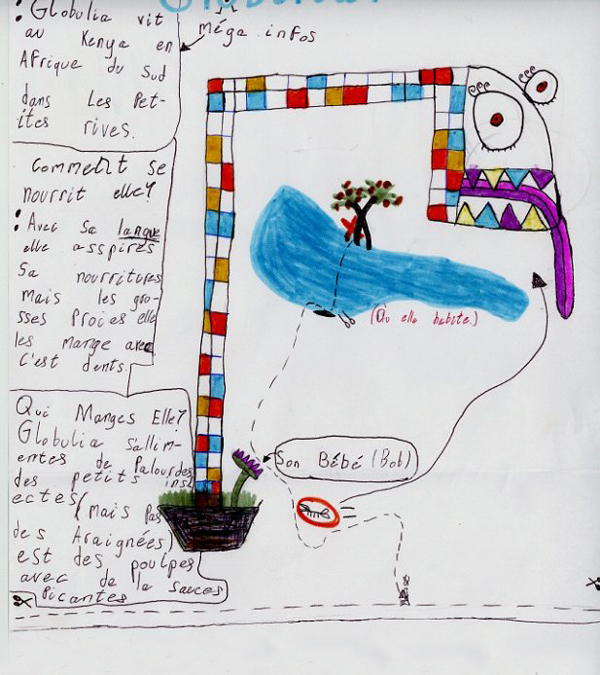 Globulia
: Globulia vit
au Kenya en
Afrique du Sud
dans Les Pet-
ites rives.
Méga infos
Comment se
nourrit elle?
: Avec Sa langue
elle asspires
Sa nourritures
mais les gro-
sses Proies elle
les mange avec
C'est dents.
Qui Manges Elle?
Globulia S'allim-
entes de Palourdes
des petits ins
ectes (mais pas
des Araignées)
est des poulpes
avec de la sauces
Picantes
(Où elle habite.)
Son Bébé (Bob)